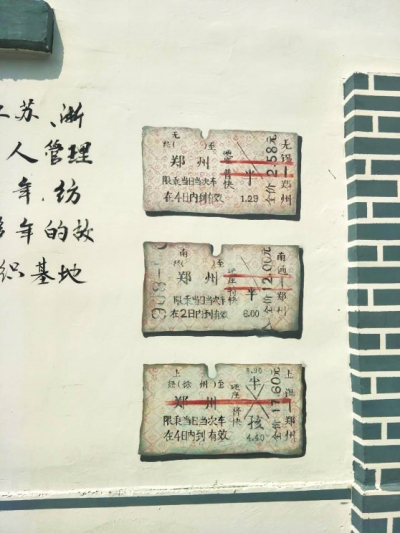 江苏、浙
人管理
年,纺
年的故
织基地
无
经( )至
郑州
普快
半
限乘当日当次车
在4日内到有效
1.29
全价2.58元
无锡—郑州
南
经( )至
郑州
半
限乘当日当次车
在2日内到有效
6.00
全价12.00元
南通—郑州
上
经(徐州)至
郑州
半
孩
限乘当日当次车
在4日内到有效
4.40
8.80
全价17.60元
上海—郑州